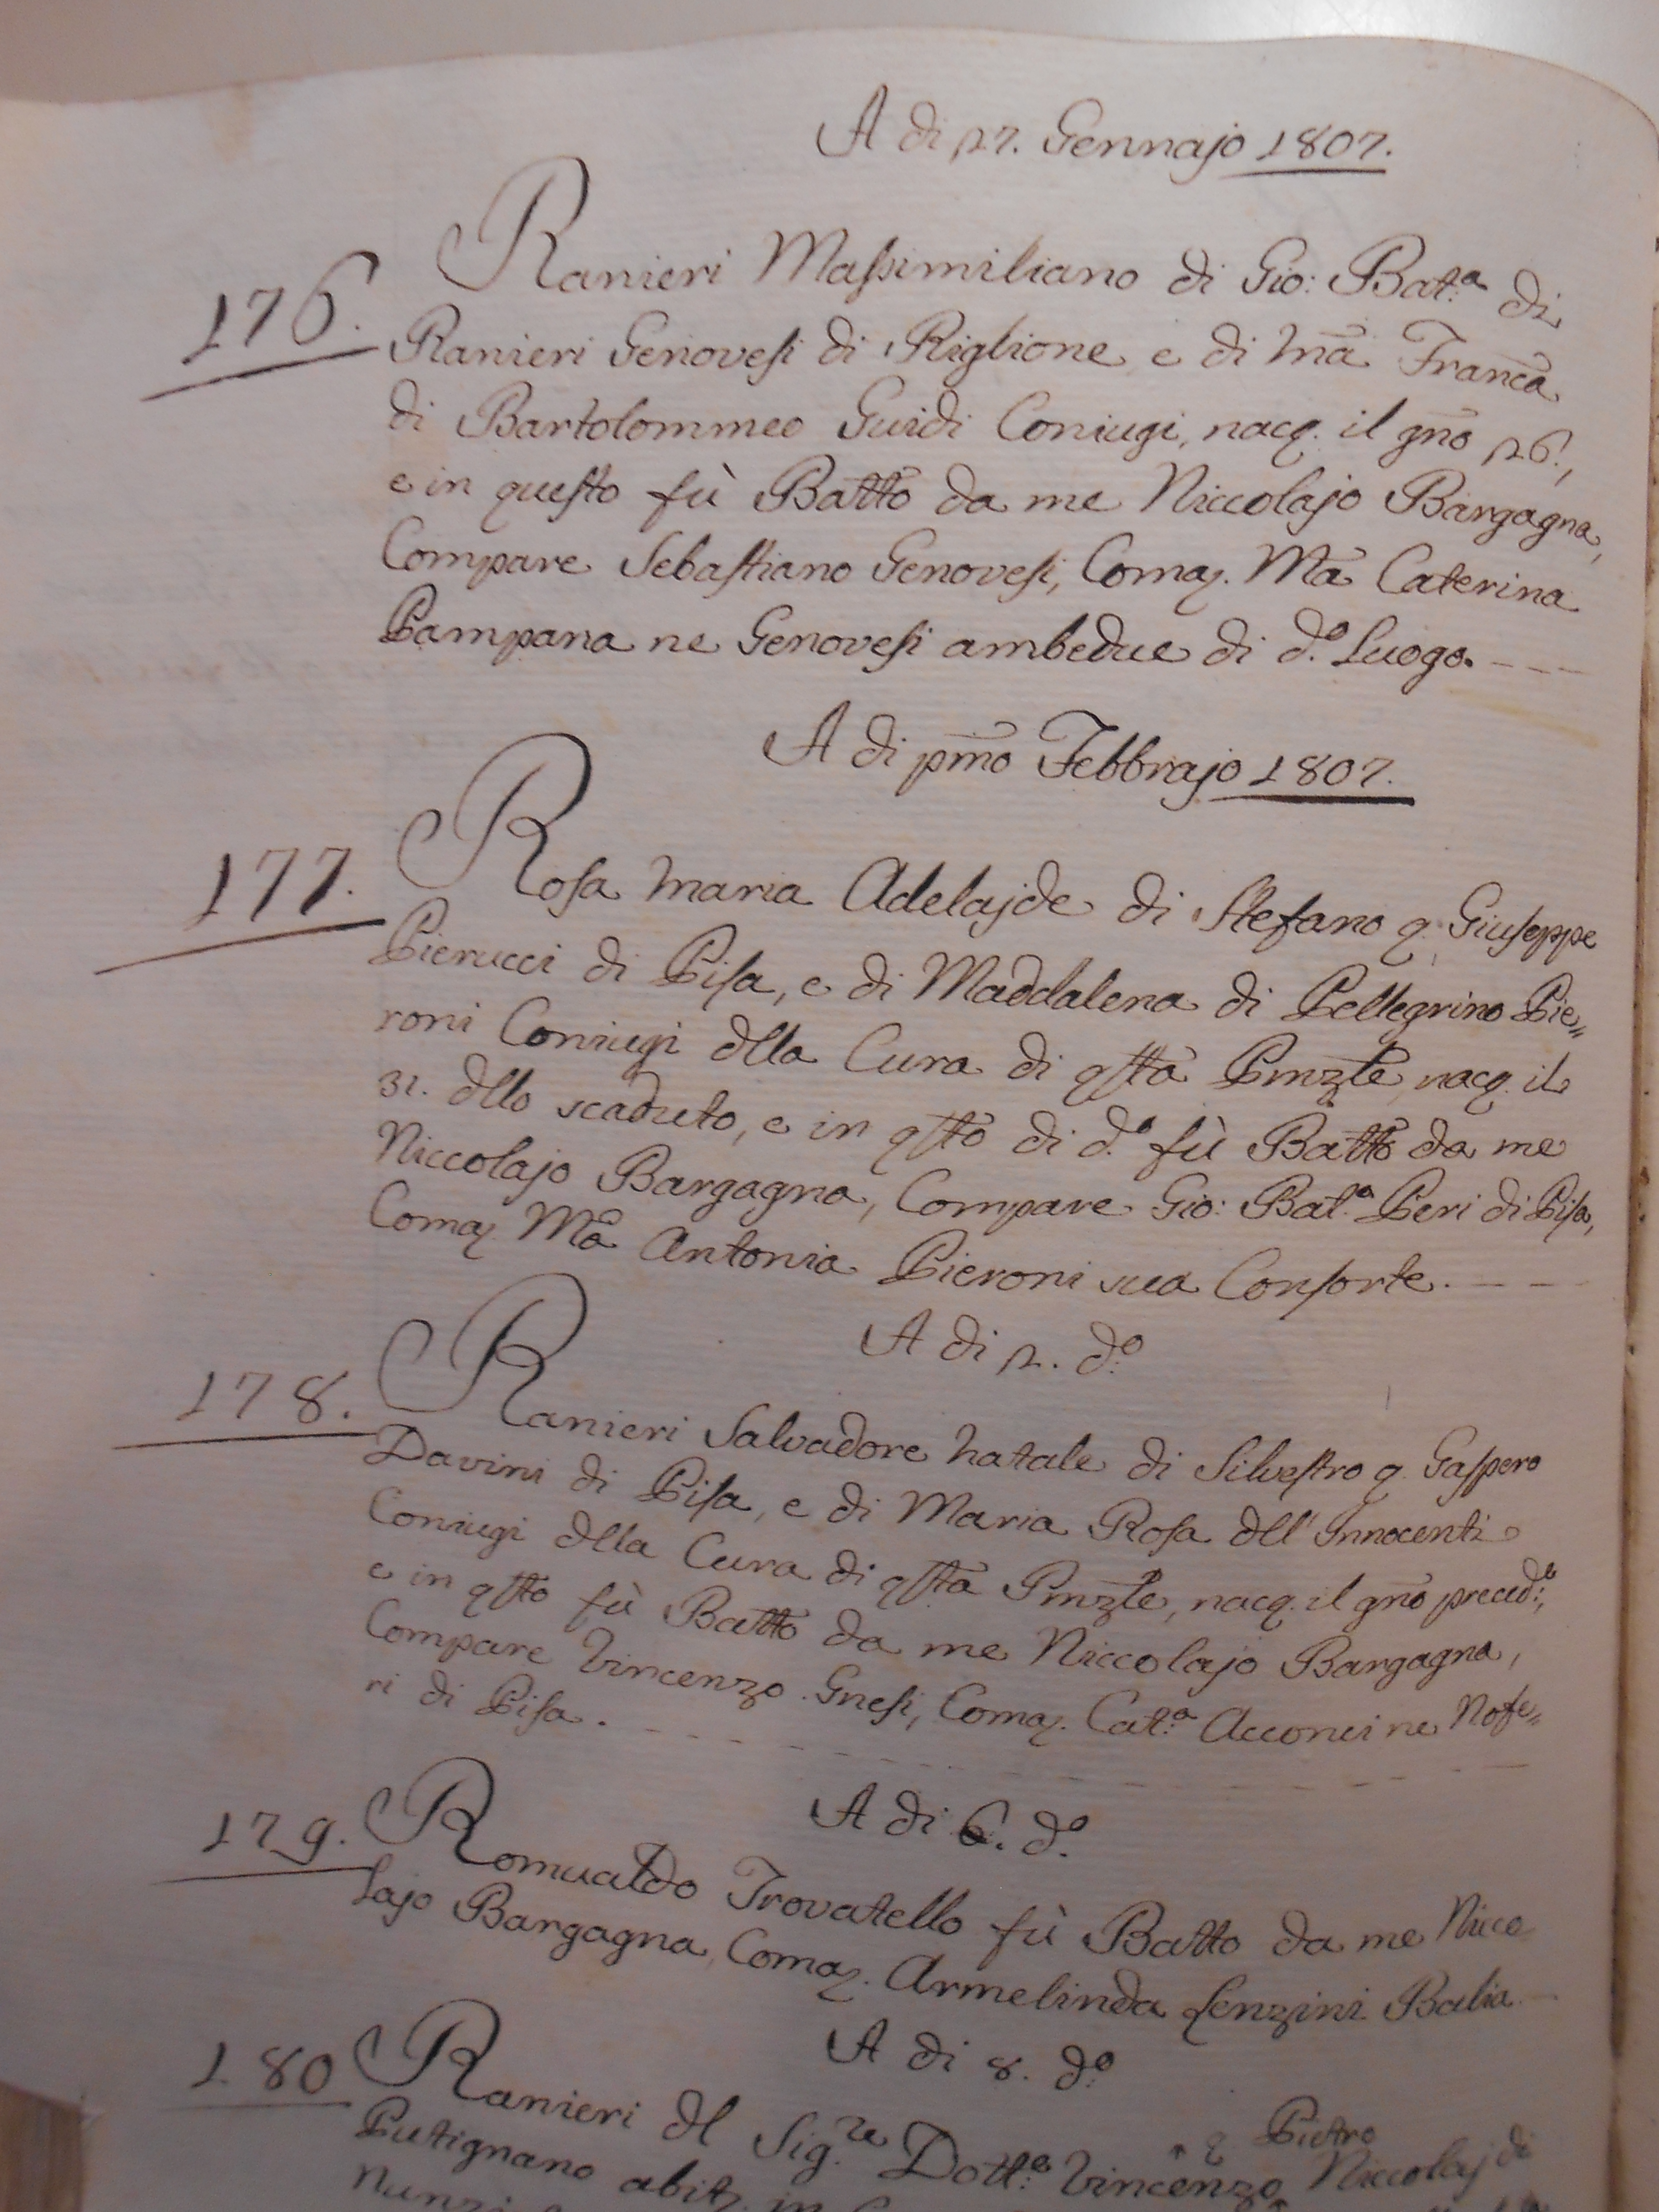 A di 27. Gennajo 1807.
176.
Ranieri Massimiliano di Gio: Bat.ª di
Ranieri Genovesi di Riglione e di Mª Francª
di Bartolommeo Guidi Coniugi, nacq. il gño 26.,
e in questo fù Batt̃o da me Niccolajo Bargagna,
Compare Sebastiano Genovesi, Comaȝ. Mª Caterina
Pampana ne Genovesi ambedue di d.º Luogo. - - -
A di pm̃o Febbrajo 1807.
177.
Rosa Maria Adelajde di Stefano q. Giuseppe
Pierucci di Pisa, e di Maddalena di Pellegrino Pie=
roni Coniugi dlla Cura di qsta Pmzle, nacq. il
31. dllo scaduto, e in qsto di d.º fù Batt̃o da me
Niccolajo Bargagna, Compare Gio: Bat.ª Peri di Pisa,
Comaȝ Mª Antonia Pieroni sua Consorte. - - -
A di 2. d.º
178.
Ranieri Salvadore Natale di Silvestro q. Gaspero
Davini di Pisa, e di Maria Rosa dll' Innocenti
Coniugi dlla Cura di qsta Pmzle, nacq. il gño preced.e,
e in qsto fù Batt̃o da me Niccolajo Bargagna,
Compare Vincenzo Gnesi, Comaȝ. Cat.ª Acconci ne Nofe=
ri di Pisa. - - -
A di 6. d.º
179.
Romualdo Trovatello fù Batto da me Nicco
lajo Bargagna, Comaȝ. Armelinda Lenzini Balia.
A di 8. d.º
180
Ranieri dl Sig.re Dott.e Vincenzo q Pietro Niccolaj di
Putignano abitȝ. in
Nunzi